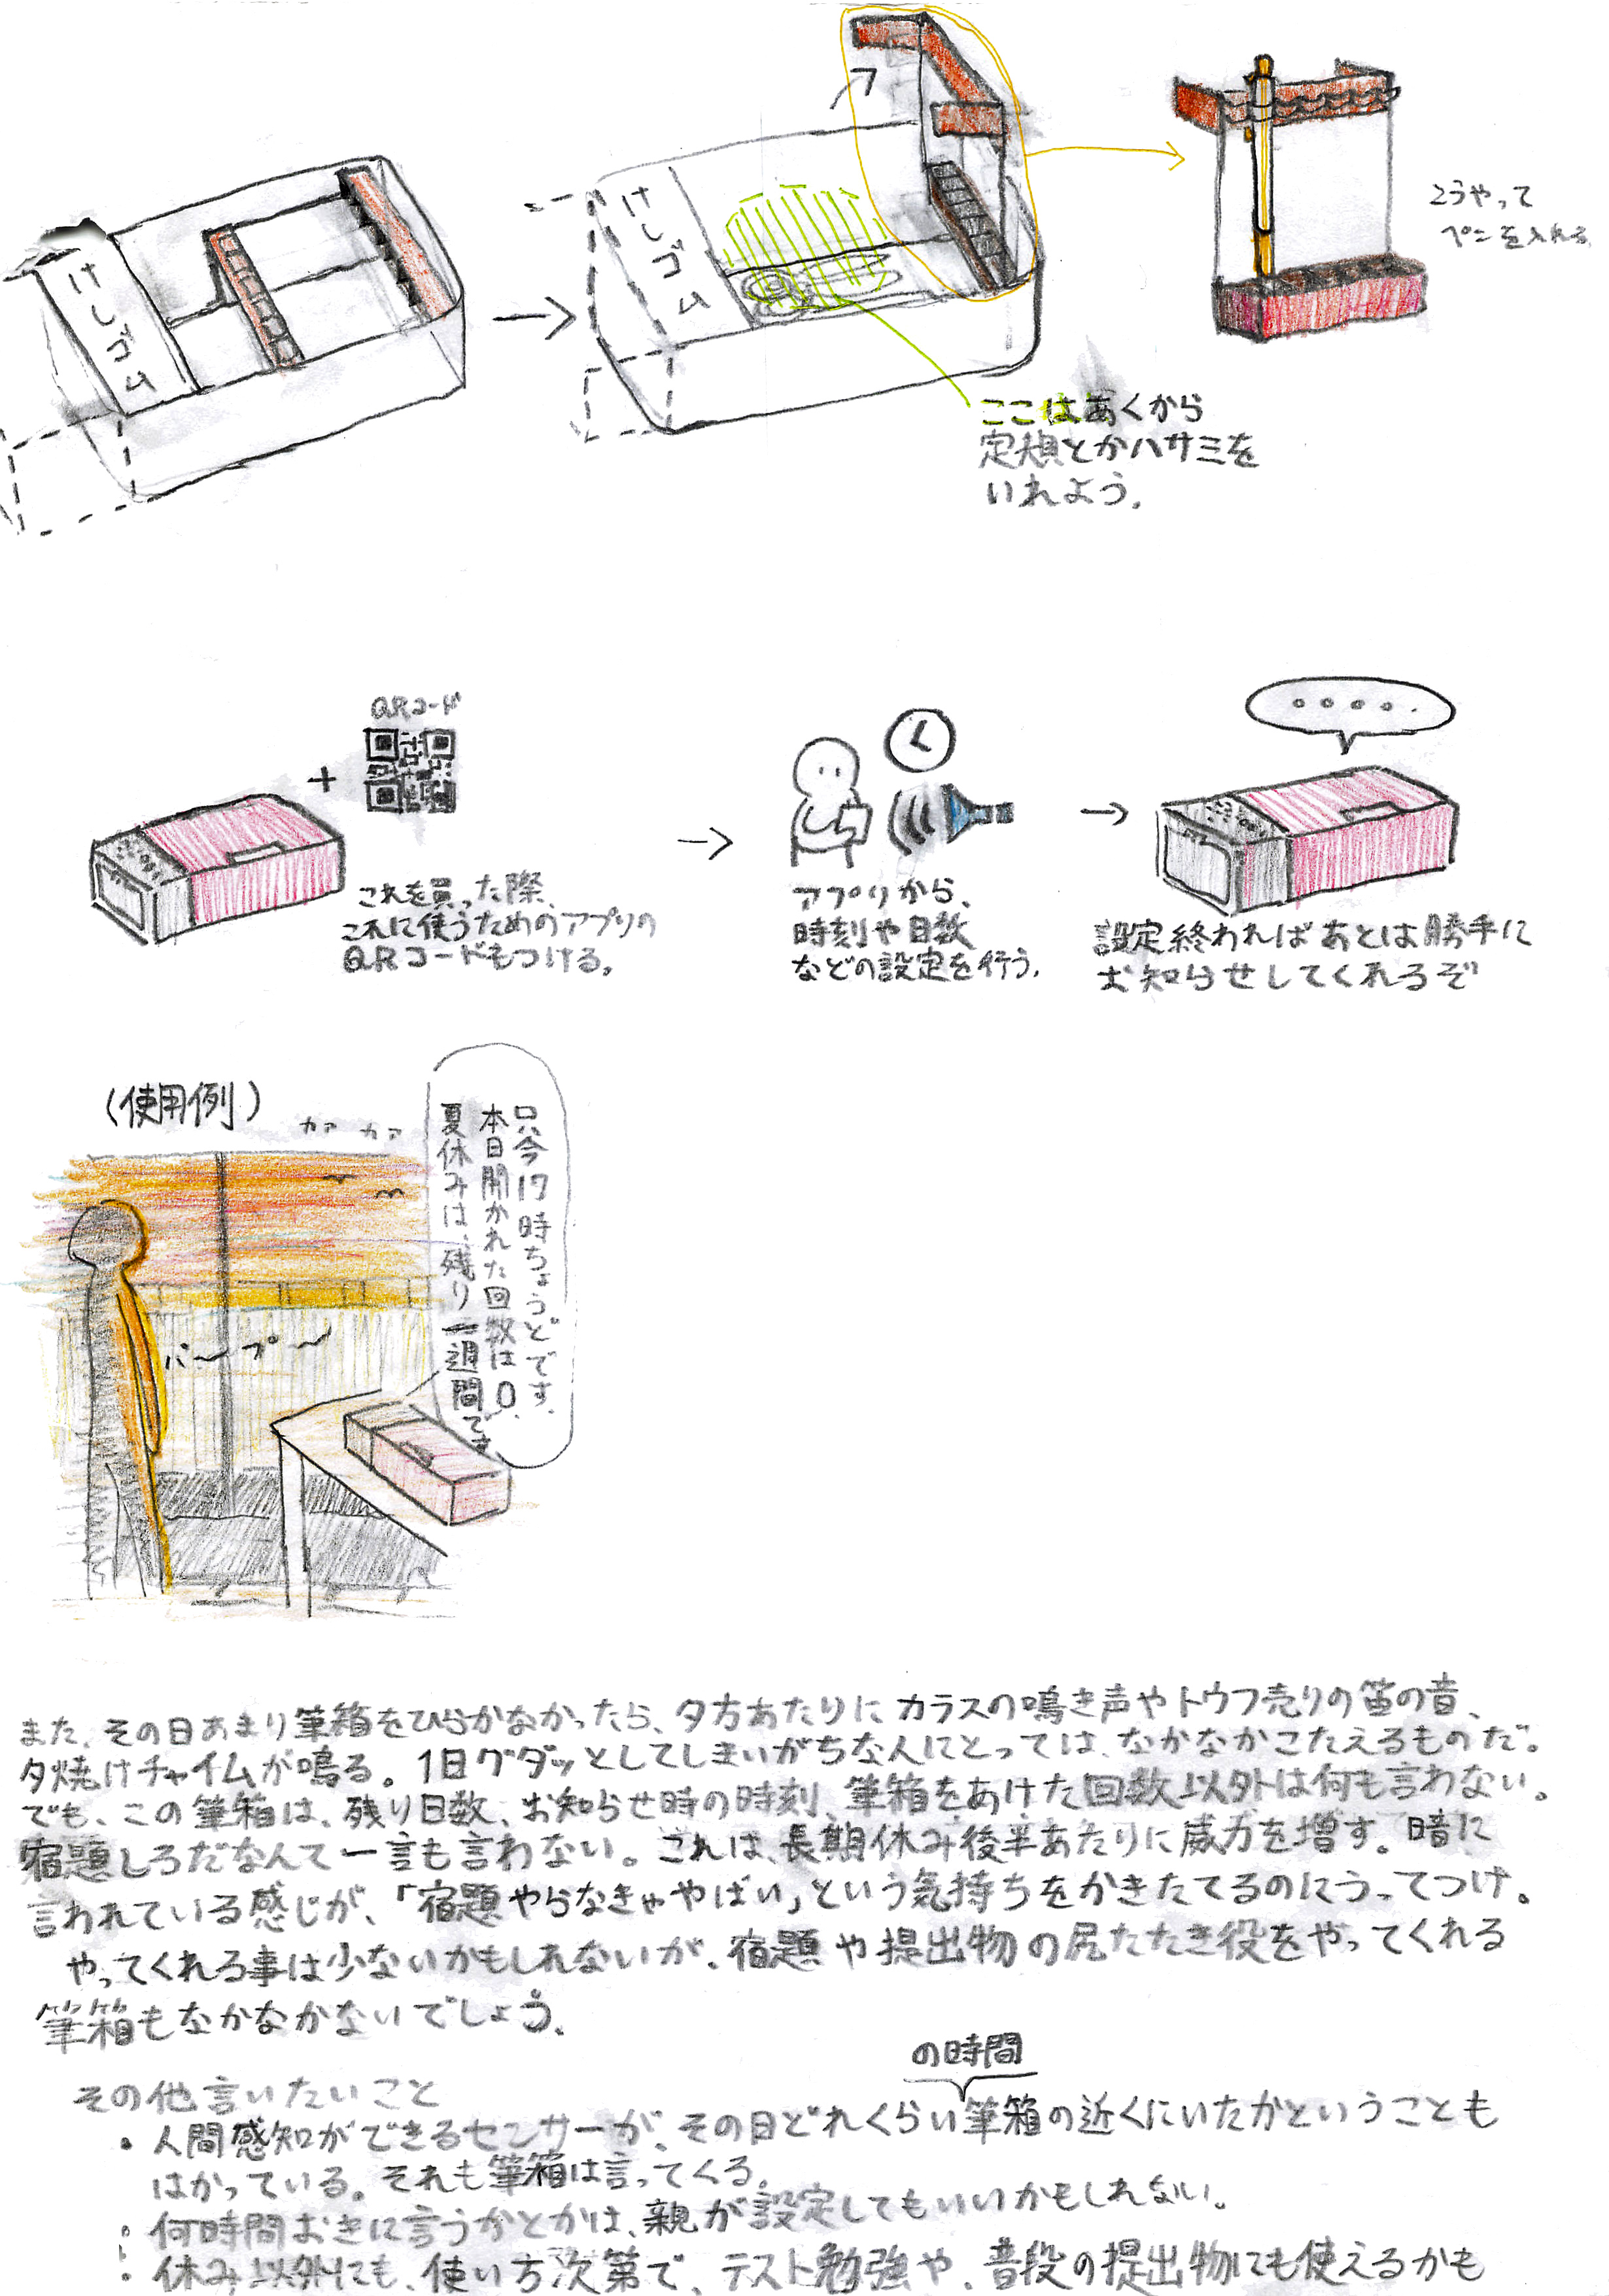 けしゴム
けしゴム
こうやって
ペンを入れる
ここはあくから
定規とかハサミを
いれよう。
QRコード
+
これを買った際、
これに使うためのアプリの
QRコードもつける。
アプリから、
時刻や日数
などの設定を行う。
設定終わればあとは勝手に
お知らせしてくれるぞ
(使用例)
カァ カァ
只今17時ちょうどです。
本日開かれた回数は0、
夏休みは、残り一週間です。
パ～プ～
また、その日あまり筆箱をひらかなかったら、夕方あたりにカラスの鳴き声やトウフ売りの笛の音、
夕焼けチャイムが鳴る。1日グダッとしてしまいがちな人にとっては、なかなかこたえるものだ。
でも、この筆箱は、残り日数、お知らせ時の時刻、筆箱をあけた回数以外は何も言わない。
宿題しろだなんて一言も言わない。これは、長期休み後半あたりに威力を増す。暗に
言われている感じが、「宿題やらなきゃやばい」という気持ちをかきたてるのにうってつけ。
やってくれる事は少ないかもしれないが、宿題や提出物の尻たたき役をやってくれる
筆箱もなかなかないでしょう。
の時間
その他言いたいこと
・人間感知ができるセンサーが、その日どれくらい筆箱の近くにいたかということも
はかっている。それも筆箱は言ってくる。
・何時間おきに言うかとかは、親が設定してもいいかもしれない。
・休み以外にも、使い方次第で、テスト勉強や、普段の提出物にも使えるかも